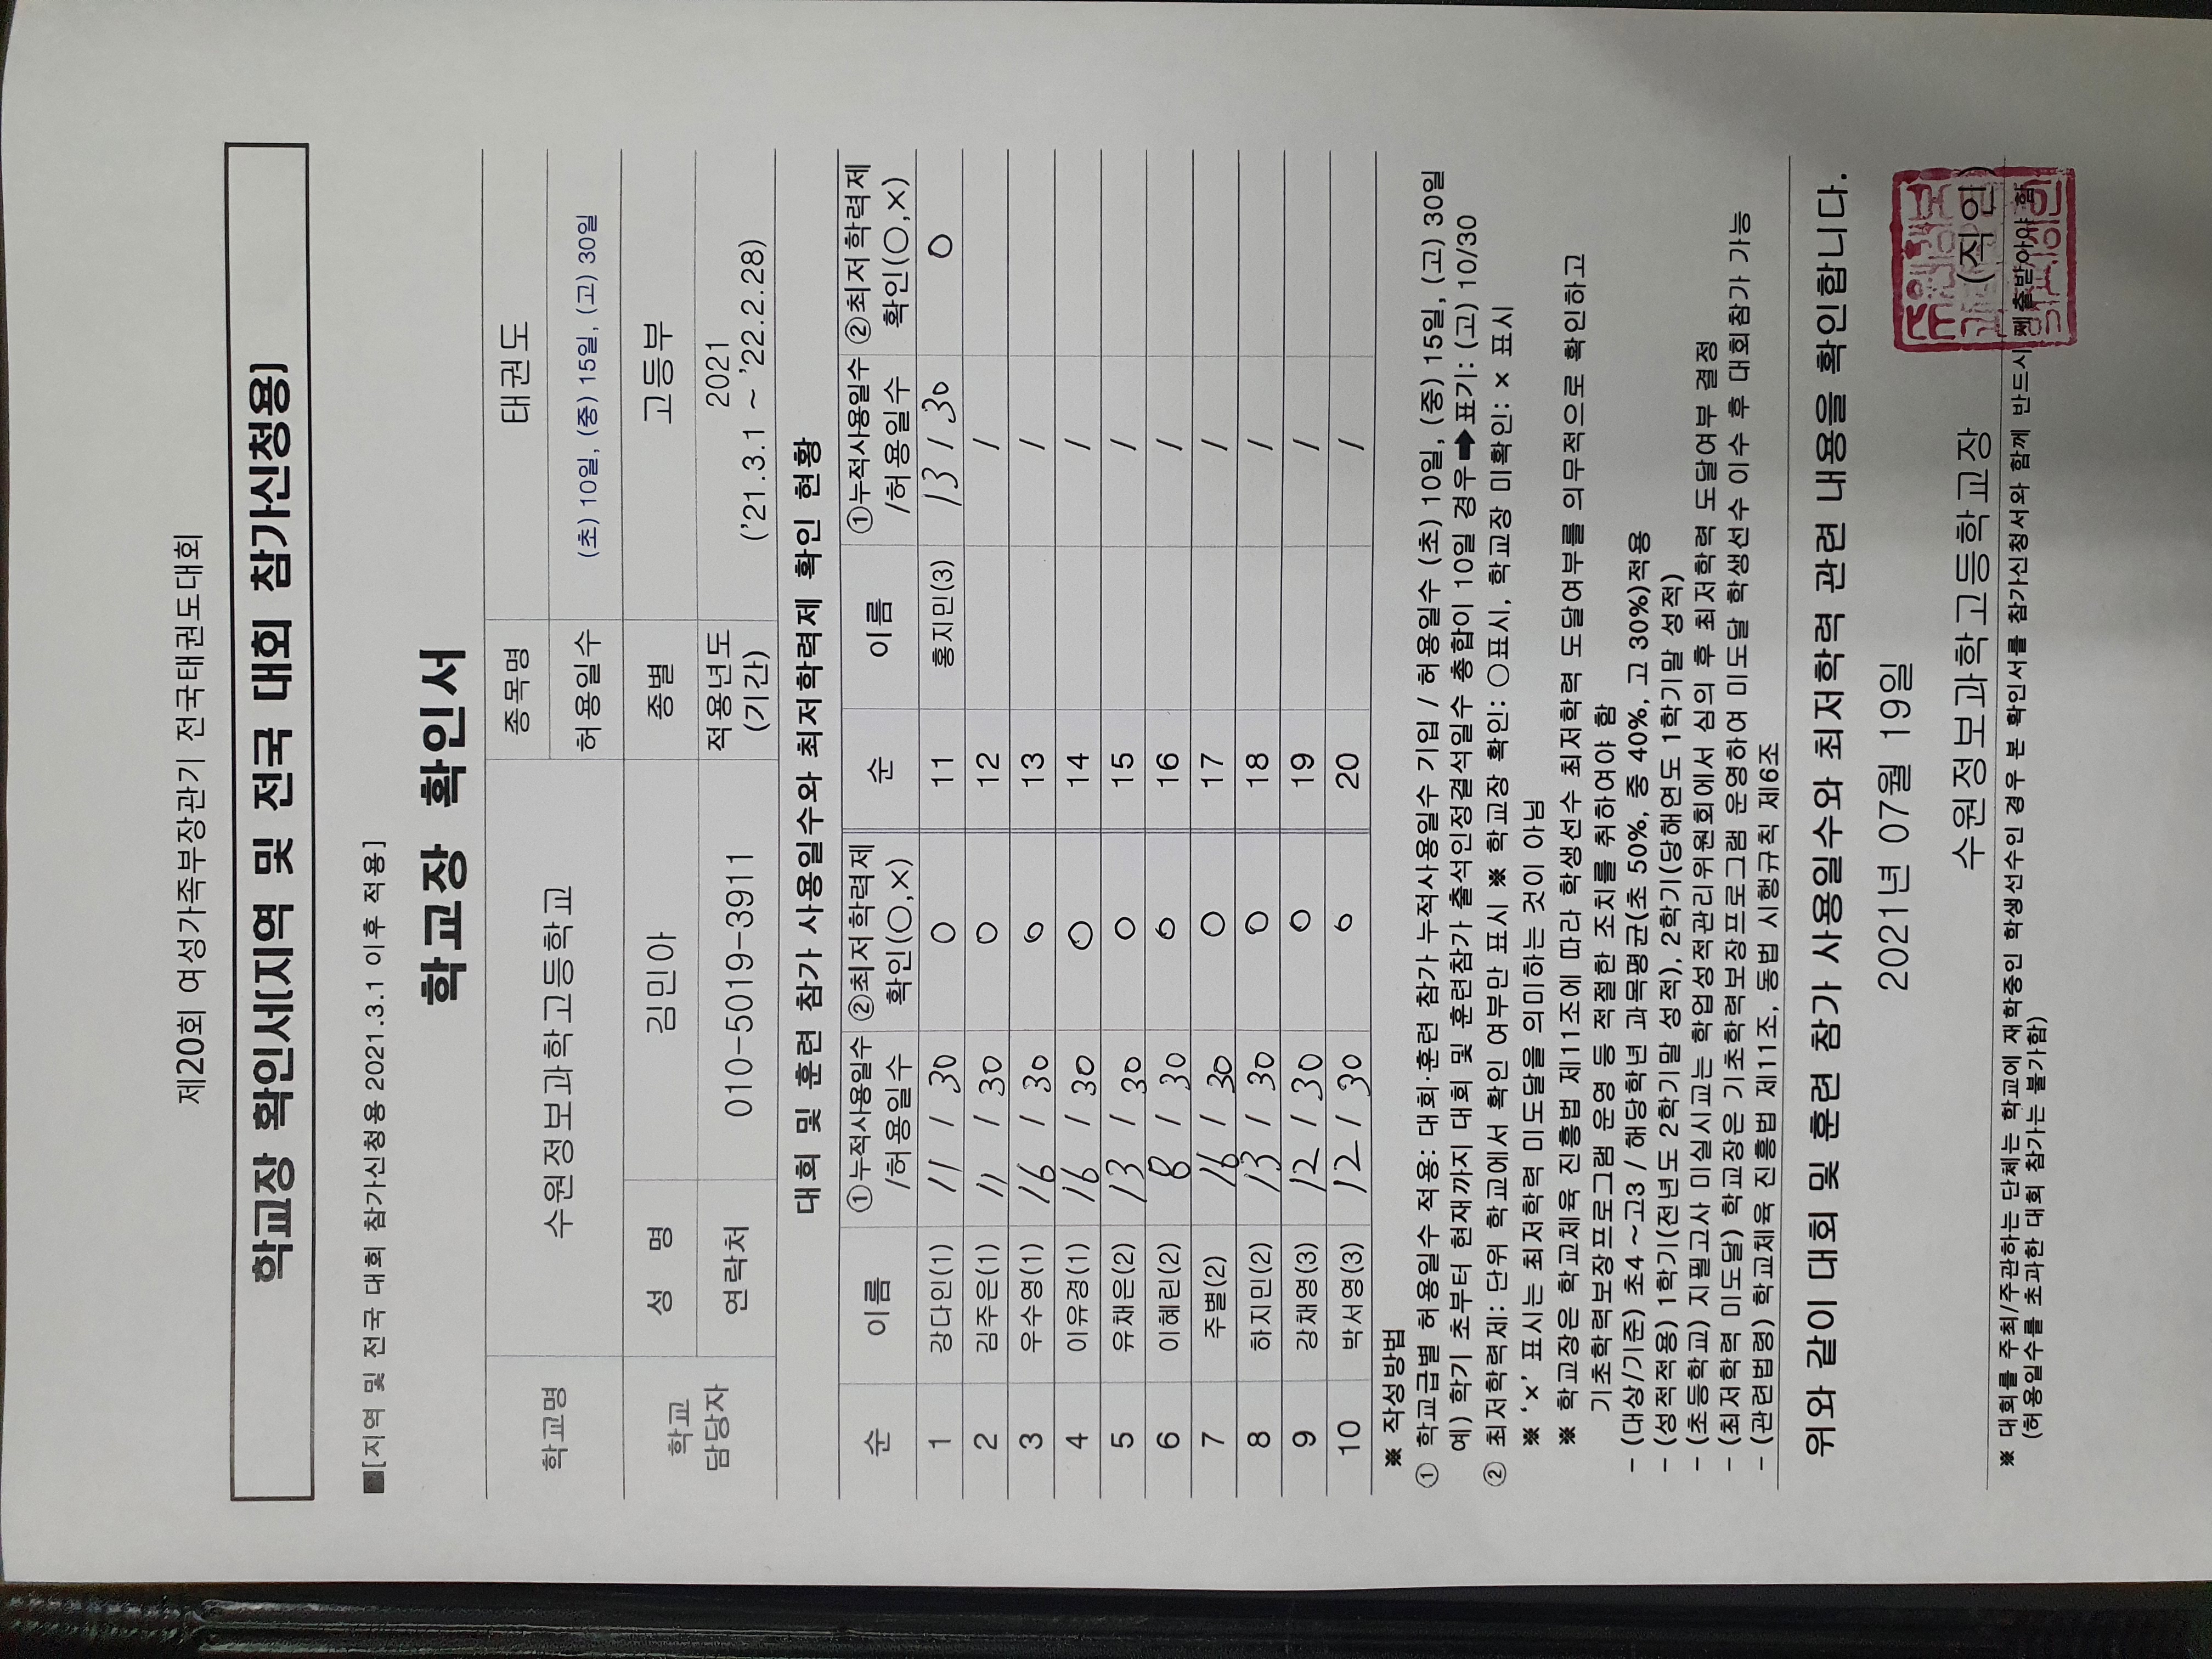 제20회 여성가족부장관기 전국태권도대회
학교장 확인서[지역 및 전국 대회 참가신청용]
■[지역 및 전국 대회 참가신청용 2021.3.1 이후 적용]
학교장 확인서
학교명 수원정보과학고등학교 종목명 태권도
허용일수 (초) 10일, (중) 15일, (고) 30일
학교 담당자 성 명 김민아 종별 고등부
연락처 010-5019-3911 적용년도 (기간) 2021 ('21.3.1 ~ '22.2.28)
대회 및 훈련 참가 사용일수와 최저학력제 확인 현황
순 이름 ①누적사용일수 /허용일수 ②최저학력제 확인(○,×) 순 이름 ①누적사용일수 /허용일수 ②최저학력제 확인(○,×)
1 강다인(1) 11 / 30 ○ 11 홍지민(3) 13 / 30 ○
2 김주은(1) 11 / 30 ○ 12 /
3 우수영(1) 16 / 30 ○ 13 /
4 이유경(1) 16 / 30 ○ 14 /
5 유채은(2) 13 / 30 ○ 15 /
6 이혜린(2) 8 / 30 ○ 16 /
7 주별(2) 16 / 30 ○ 17 /
8 하지민(2) 13 / 30 ○ 18 /
9 강채영(3) 12 / 30 ○ 19 /
10 박서영(3) 12 / 30 ○ 20 /
※ 작성방법
① 학교급별 허용일수 적용: 대회·훈련 참가 누적사용일수 기입 / 허용일수 (초) 10일, (중) 15일, (고) 30일
예) 학기 초부터 현재까지 대회 및 훈련참가 출석인정결석일수 총합이 10일 경우 ➡ 표기: (고) 10/30
② 최저학력제: 단위 학교에서 확인 여부만 표시 ※ 학교장 확인: ○표시, 학교장 미확인: × 표시
※ '×' 표시는 최저학력 미도달을 의미하는 것이 아님
※ 학교장은 학교체육 진흥법 제11조에 따라 학생선수 최저학력 도달여부를 의무적으로 확인하고
기초학력보장프로그램 운영 등 적절한 조치를 취하여야 함
- (대상/기준) 초4 ~ 고3 / 해당학년 과목평균(초 50%, 중 40%, 고 30%)적용
- (성적적용) 1학기(전년도 2학기말 성적), 2학기(당해연도 1학기말 성적)
- (초등학교) 지필고사 미실시교는 학업성적관리위원회에서 심의 후 최저학력 도달여부 결정
- (최저학력 미도달) 학교장은 기초학력보장프로그램 운영하여 미도달 학생선수 이수 후 대회참가 가능
- (관련법령) 학교체육 진흥법 제11조, 동법 시행규칙 제6조
위와 같이 대회 및 훈련 참가 사용일수와 최저학력 관련 내용을 확인합니다.
2021년 07월 19일
수원정보과학고등학교장 (직인)
※ 대회를 주최/주관하는 단체는 학교에 재학중인 학생선수인 경우 본 확인서를 참가신청서와 함께 반드시 제출받아야 함
(허용일수를 초과한 대회 참가는 불가함)